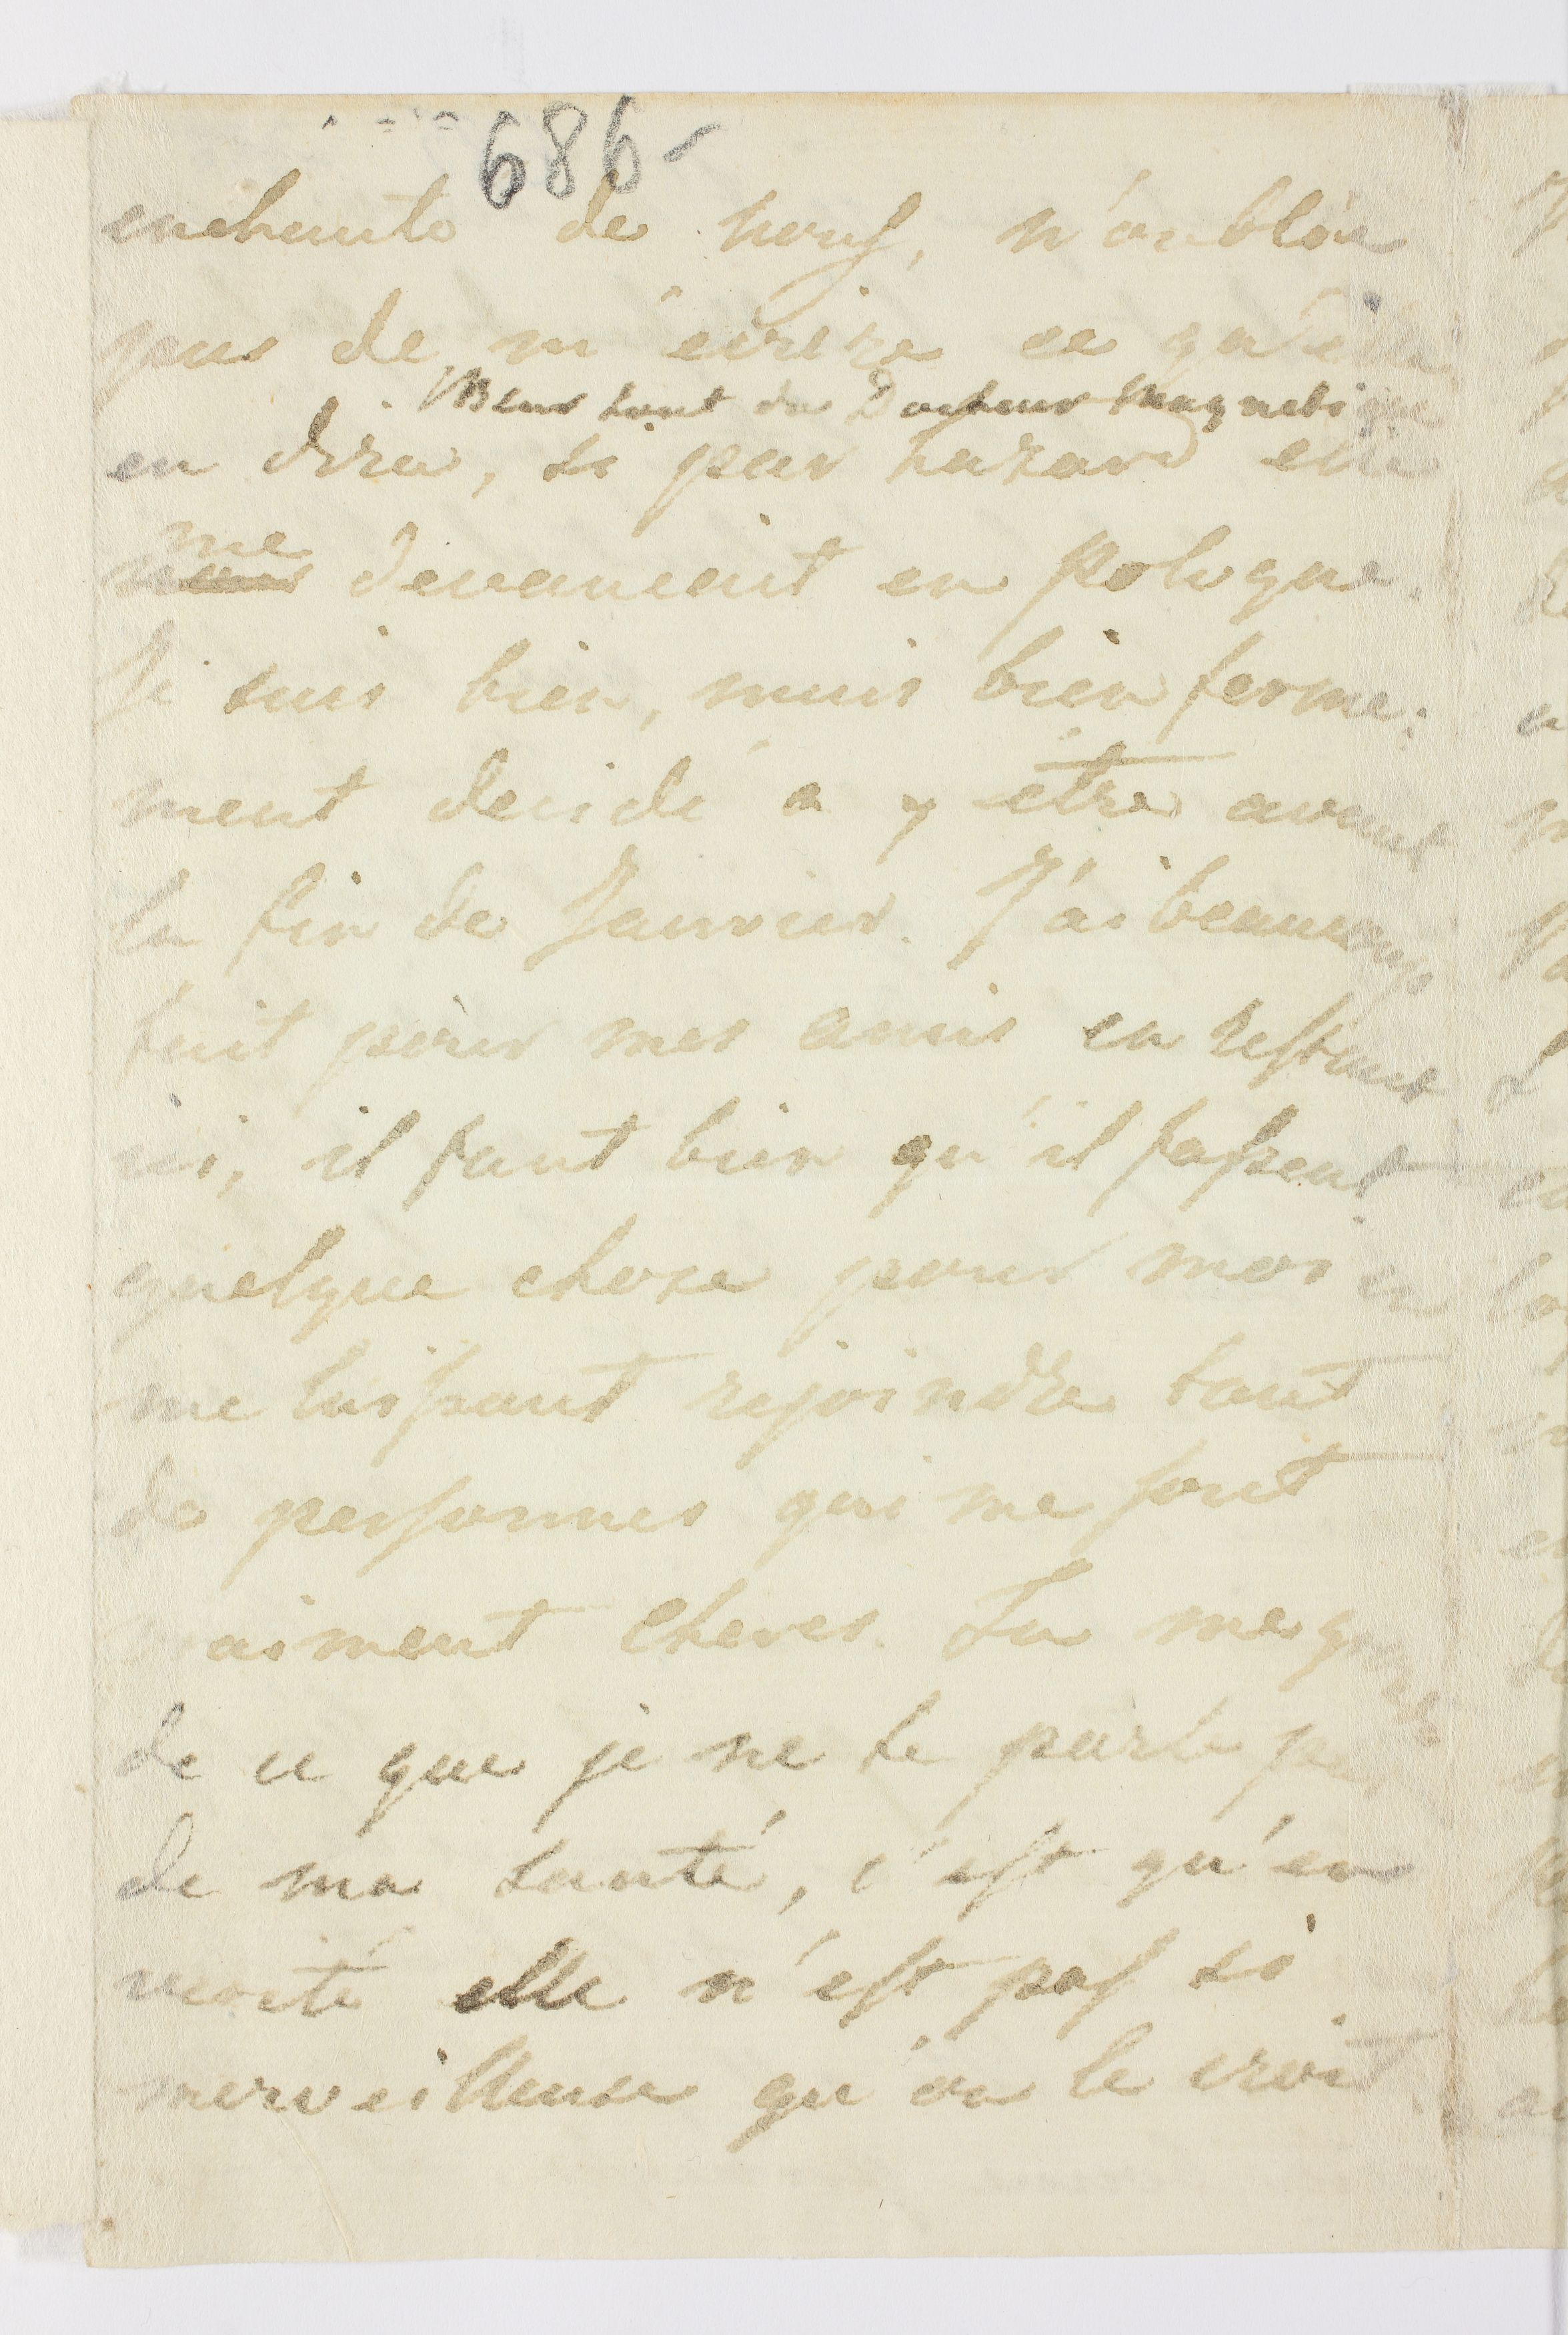 686-
enchanté de neuf, n'oublie
pas de m'ecrire ce qu'elle
surtout du Docteur Magnetique
en dira, si par hazard elle
me
nous devancait en Pologne.
Je suis bien, mais bien ferme:
ment decidé a y etre avant
la fin de Janvier. J'ai beaucoup
fait pour mes amis en restant
ici, il faut bien qu'il fassent
quelque chose pour moi en
me laissant rejoindre tant
de personnes qui me sont
vraiment cheres. Tu me
de ce que je ne te parle pas
de ma santé, c'est qu'en
verité elle n'est pas si
merveilleuse qu'on le croit